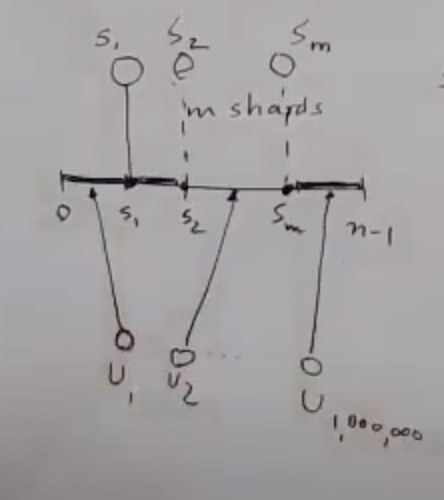 S1 S2 Sm
m shards
0 S1 S2 Sm n-1
U1 U2 ....
U1,000,000